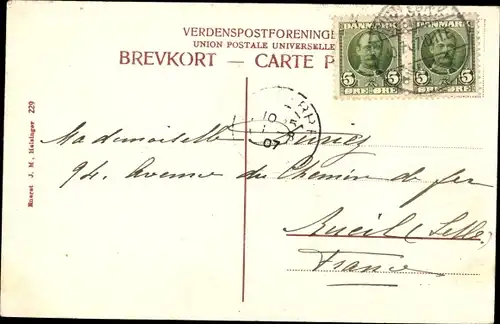 VERDENSPOSTFORENINGE
UNION POSTALE UNIVERSELLE
BREVKORT — CARTE P
DANMARK
5 5
ØRE ØRE
DANMARK
5 5
ØRE ØRE
10
1
07
Mademoiselle
94. Avenue du Chemin de fer
Rueil (
France
Eneret J. M., Helsingør 229